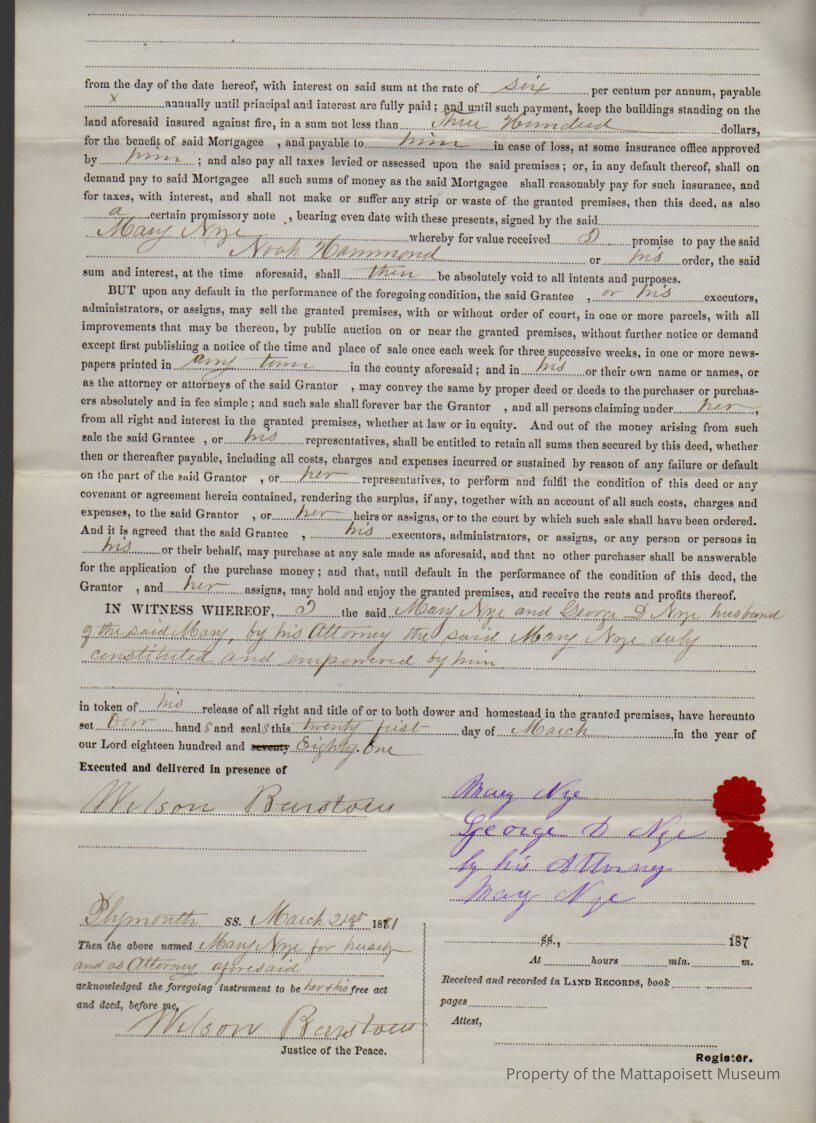 from the day of the date hereof, with interest on said sum at the rate of six per centum per annum, payable
x annually until principal and interest are fully paid; and until such payment, keep the buildings standing on the
land aforesaid insured against fire, in a sum not less than Three Hundred dollars,
for the benefit of said Mortgagee , and payable to him in case of loss, at some insurance office approved
by him ; and also pay all taxes levied or assessed upon the said premises; or, in any default thereof, shall on
demand pay to said Mortgagee all such sums of money as the said Mortgagee shall reasonably pay for such insurance, and
for taxes, with interest, and shall not make or suffer any strip or waste of the granted premises, then this deed, as also
a certain promissory note , bearing even date with these presents, signed by the said
Mary Nye whereby for value received I promise to pay the said
Noah Hammond or his order, the said
sum and interest, at the time aforesaid, shall then be absolutely void to all intents and purposes.
BUT upon any default in the performance of the foregoing condition, the said Grantee , or his executors,
administrators, or assigns, may sell the granted premises, with or without order of court, in one or more parcels, with all
improvements that may be thereon, by public auction on or near the granted premises, without further notice or demand
except first publishing a notice of the time and place of sale once each week for three successive weeks, in one or more news-
papers printed in any town in the county aforesaid; and in his or their own name or names, or
as the attorney or attorneys of the said Grantor , may convey the same by proper deed or deeds to the purchaser or purchas-
ers absolutely and in fee simple; and such sale shall forever bar the Grantor , and all persons claiming under her,
from all right and interest in the granted premises, whether at law or in equity. And out of the money arising from such
sale the said Grantee , or his representatives, shall be entitled to retain all sums then secured by this deed, whether
then or thereafter payable, including all costs, charges and expenses incurred or sustained by reason of any failure or default
on the part of the said Grantor , or her representatives, to perform and fulfil the condition of this deed or any
covenant or agreement herein contained, rendering the surplus, if any, together with an account of all such costs, charges and
expenses, to the said Grantor , or her heirs or assigns, or to the court by which such sale shall have been ordered.
And it is agreed that the said Grantee , his executors, administrators, or assigns, or any person or persons in
his or their behalf, may purchase at any sale made as aforesaid, and that no other purchaser shall be answerable
for the application of the purchase money; and that, until default in the performance of the condition of this deed, the
Grantor , and her assigns, may hold and enjoy the granted premises, and receive the rents and profits thereof.
IN WITNESS WHEREOF, I the said Mary Nye and George D Nye husband
of the said Mary, by his Attorney the said Mary Nye duly
constituted and empowered by him
in token of his release of all right and title of or to both dower and homestead in the granted premises, have hereunto
set Our hand s and seal s this twenty first day of March in the year of
our Lord eighteen hundred and seventy Eighty One
Executed and delivered in presence of
Wilson Barstow
Mary Nye
George D Nye
by his Attorney
Mary Nye
Plymouth SS. March 21st 1881
Then the above named Mary Nye for herself
and as Attorney aforesaid
acknowledged the foregoing instrument to be her & his free act
and deed, before me,
Wilson Barstow
Justice of the Peace.
SS., 187
At hours min. m.
Received and recorded in LAND RECORDS, book
pages
Attest,
Register.
Property of the Mattapoisett Museum